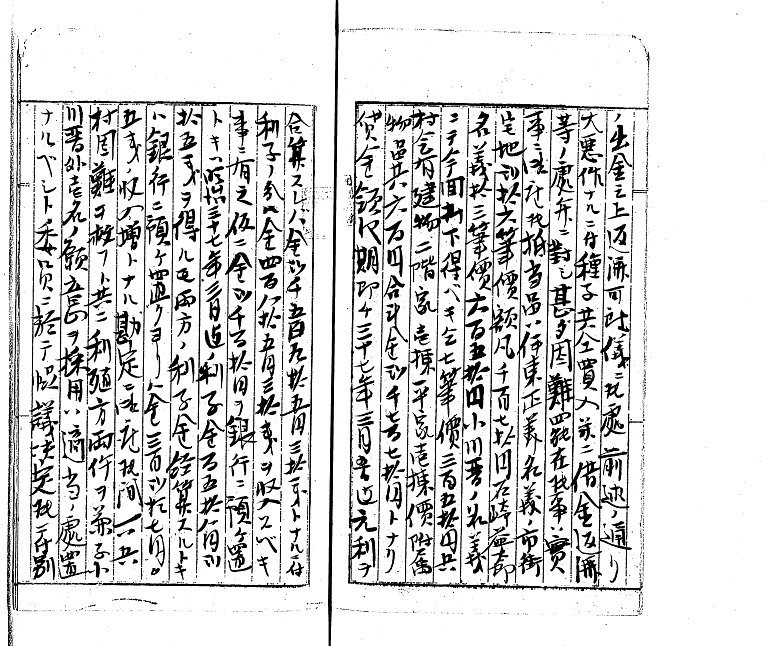 ノ出金之上返済可致儀ニ候處前述ノ通リ
大悪作ナルニ付種子共全買入並ニ借金返済
等ノ處弁ニ對シ甚タ困難罷在候事實
事ニ候就抵当品ハ伊東正義名義ノ市街
宅地弐拾六筆價額凡千百七拾円石崎益郎
名義拾三筆價六百五拾円小川晋ノ名義
ニテ今回拂下得ベキ七筆價三百五拾円共
村会有建物二階家壱棟平家壱棟價附属
物品共六百円合計金弐千七百七拾円トナリ
貸金額ハ期即チ三十七年三月迄元利ヲ
合算スレバ金弐千五百九拾五円三拾トナルニ付
利子ノ分金四百八拾五円三拾戔ヲ収入スベキ
事ニ有之伍ニ金弐千百拾円ヲ銀行ニ預ケ置
トキハ三十七年三月迄ノ利子金百五拾八円弐
拾五戔ヲ得ル両方ノ利子金経算スルトキ
ハ銀行ニ預ケ置クヨリハ金三百弐拾七円
五戔ノ収入増トナル勘定ニ候就間一ハ共
村困難ヲ救フト共ニ利殖方両件ヲ兼小
川晋外壱名ノ願意ヲ採用ハ適当ノ處置
ナルベシト委員ニ於テ協議決定候ニ付別